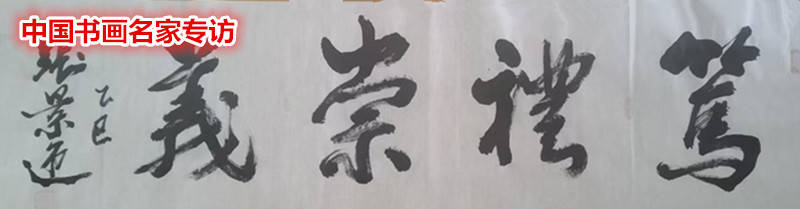 中国书画名家专访
篤禮崇義
乙巳
景